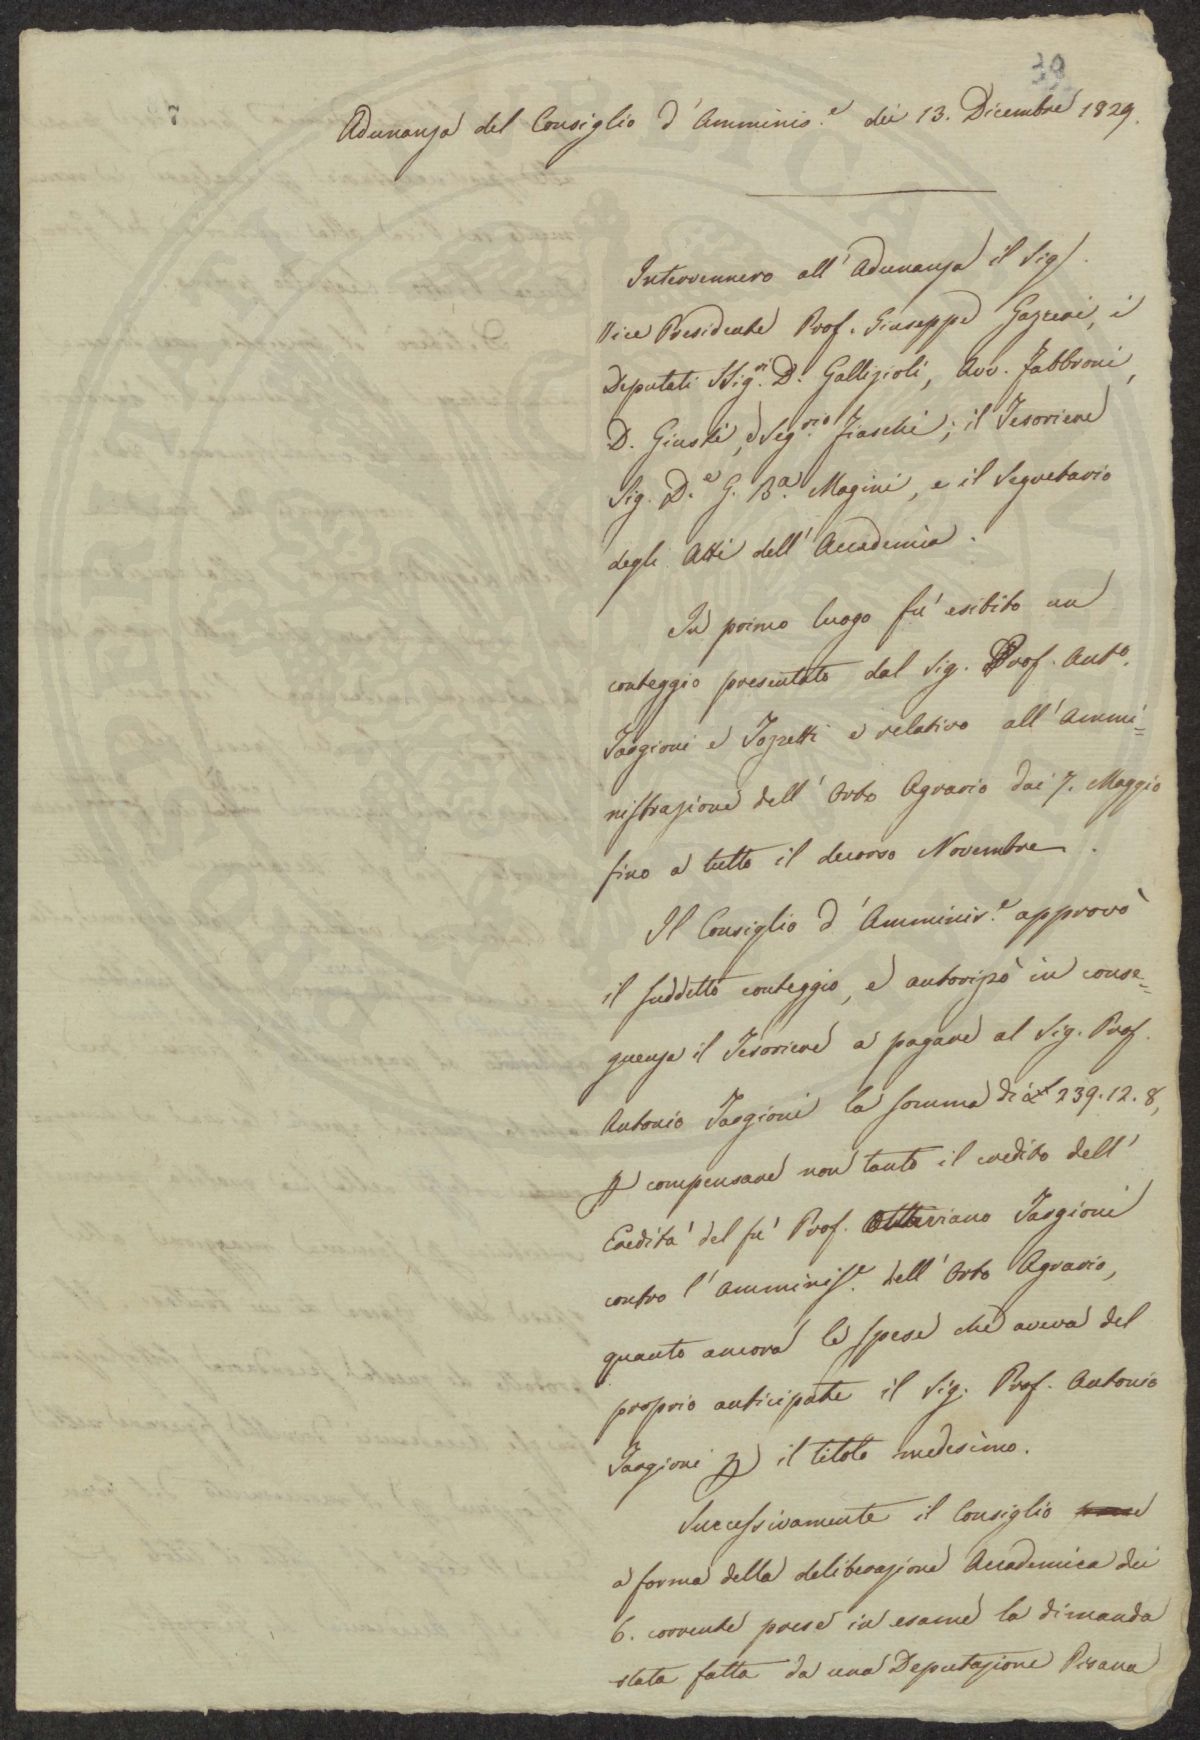 39
7
Adunanza del Consiglio d'Amminis.e dei 13. Dicembre 1829.
Intervennero all'Adunanza il Sig.
Vice Presidente Prof. Giuseppe Gazzeri, i
Deputati SSig.ri D. Gallizioli, Avv. Fabbroni,
D. Giusti, e Seg.rio Fiaschi; il Tesoriere
Sig. D.e G. B.a Magini, e il Segretario
degli Atti dell'Accademia.
In primo luogo fu' esibito un
conteggio presentato dal Sig. Prof. Ant.o
Targioni e Tozzetti e relativo all'Ammi=
nistrazione dell'Orto Agrario dai 7. Maggio
fino a tutto il decorso Novembre.
Il Consiglio d'Amminis.e approvò
il suddetto conteggio, e autorizzò in conse=
guenza il Tesoriere a pagare al Sig. Prof.
Antonio Targioni la somma di £ 239.12.8,
p compensare non tanto il credito dell'
Eredità del fu' Prof. Ottaviano Targioni
contro l'Amminis.e dell'Orto Agrario,
quanto ancora le spese che aveva del
proprio anticipate il Sig. Prof. Antonio
Targioni p il titolo medesimo.
Successivamente il Consiglio
a forma della deliberazione Accademica dei
6. corrente prese in esame la dimanda
stata fatta da una Deputazione Pisana